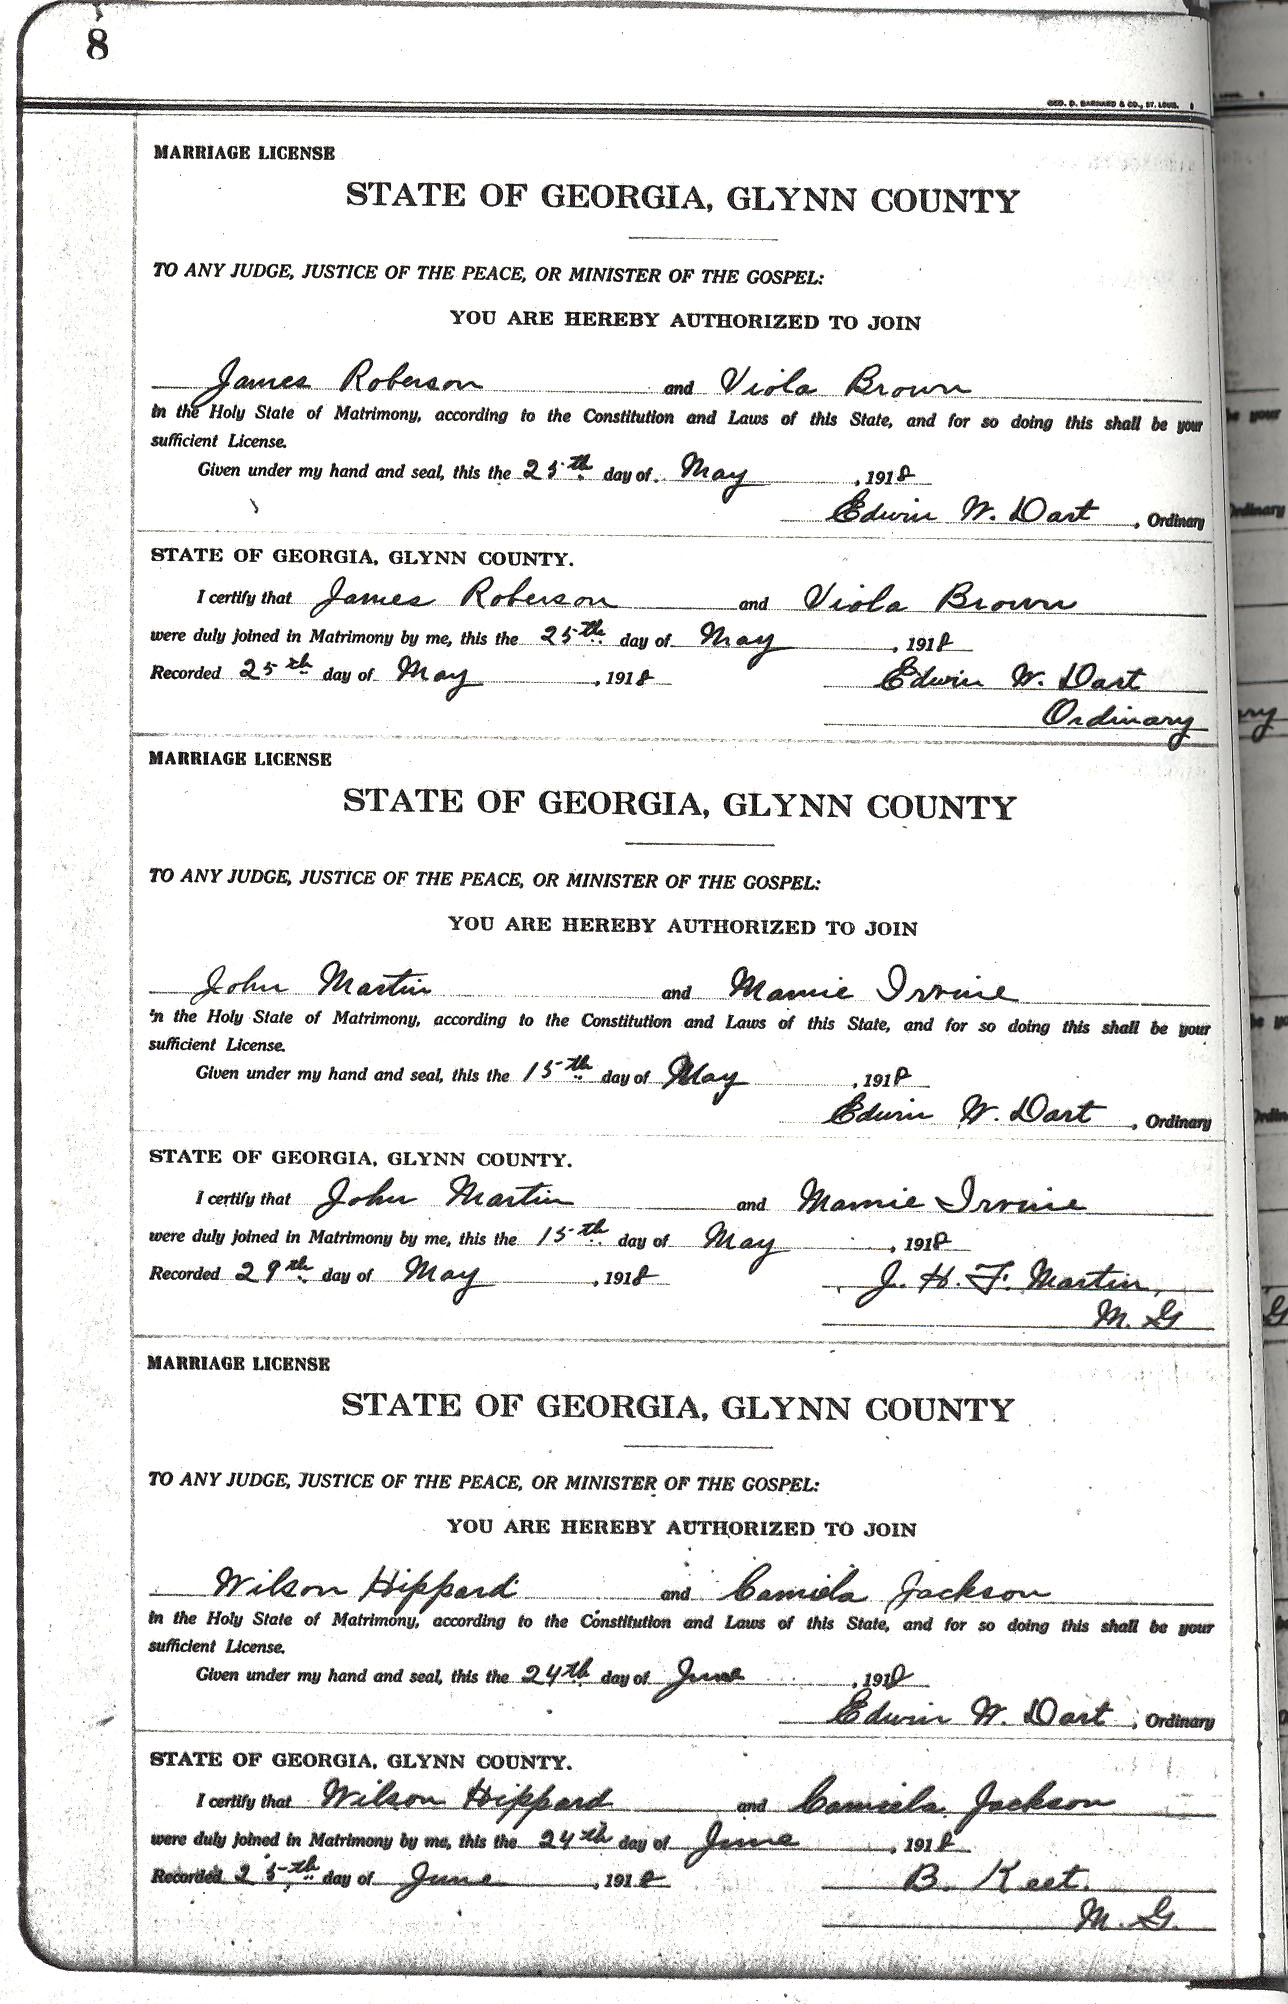 8
GEO. D. BARNARD & CO., ST. LOUIS.
MARRIAGE LICENSE
STATE OF GEORGIA, GLYNN COUNTY
TO ANY JUDGE, JUSTICE OF THE PEACE, OR MINISTER OF THE GOSPEL:
YOU ARE HEREBY AUTHORIZED TO JOIN
James Roberson and Viola Brown
in the Holy State of Matrimony, according to the Constitution and Laws of this State, and for so doing this shall be your
sufficient License.
Given under my hand and seal, this the 25th day of May, 1918
Edwin W. Dart, Ordinary
STATE OF GEORGIA, GLYNN COUNTY.
I certify that James Roberson and Viola Brown
were duly joined in Matrimony by me, this the 25th day of May, 1918
Recorded 25th day of May, 1918 Edwin W. Dart
Ordinary
MARRIAGE LICENSE
STATE OF GEORGIA, GLYNN COUNTY
TO ANY JUDGE, JUSTICE OF THE PEACE, OR MINISTER OF THE GOSPEL:
YOU ARE HEREBY AUTHORIZED TO JOIN
John Martin and Mamie Irvine
in the Holy State of Matrimony, according to the Constitution and Laws of this State, and for so doing this shall be your
sufficient License.
Given under my hand and seal, this the 15th day of May, 1918
Edwin W. Dart, Ordinary
STATE OF GEORGIA, GLYNN COUNTY.
I certify that John Martin and Mamie Irvine
were duly joined in Matrimony by me, this the 15th day of May, 1918
Recorded 29th day of May, 1918 J. H. F. Martin,
M. G
MARRIAGE LICENSE
STATE OF GEORGIA, GLYNN COUNTY
TO ANY JUDGE, JUSTICE OF THE PEACE, OR MINISTER OF THE GOSPEL:
YOU ARE HEREBY AUTHORIZED TO JOIN
Wilson Hippard and Camiela Jackson
in the Holy State of Matrimony, according to the Constitution and Laws of this State, and for so doing this shall be your
sufficient License.
Given under my hand and seal, this the 24th day of June, 1918
Edwin W. Dart, Ordinary
STATE OF GEORGIA, GLYNN COUNTY.
I certify that Wilson Hippard and Camiela Jackson
were duly joined in Matrimony by me, this the 24th day of June, 1918
Recorded 25th day of June, 1918 B. Keet.
M. G.